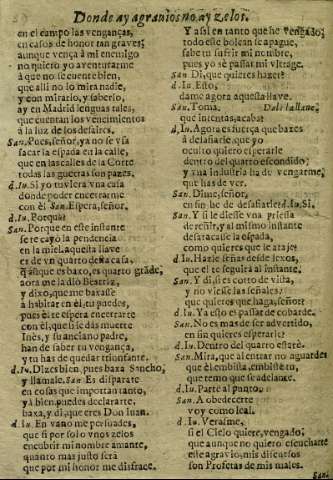 Donde ay agrauios no ay zelos.
en el campo las venganças,
en casos de honor tan graues;
aunque vença à mi enemigo
no quiero yo auenturarme
à que no se cuente bien,
que alli no lo mira nadie,
y con mirarlo, y saberlo,
ay en Madrid lenguas tales,
que cuentan los vencimientos
à la luz de los desaires.
San. Pues, señor, ya no se vsa
sacar la espada en la calle,
que en las calles de la Corte
todas las guerras son pazes.
d. Iu. Si yo tuviera vna casa
donde poder encerrarme
con èl. San. Espera, señor.
d. Iu. Porque?
San. Porque en este instante
se te cayò la pendencia
en la miel, aquesta llave
es de vn quarto desta casa,
q aũque es baxo, es quarto grãde,
aora me la diò Beatriz,
y dixo, que me baxasse
à habitar en èl, tu puedes,
pues èl te espera encerrarte
con èl, que si le das muerte
Inès, y su anciano padre,
han de saber tu vengança,
y tu has de quedar triunfante.
d. Iu. Dizes bien, pues baxa Sancho,
y llamale. San. Es disparate
en cosas que importan tanto,
ya bien puedes declararte,
baxa, y di, que eres Don Iuan.
d. Iu. En vano me persuades,
que si por solo vnos zelos
encubrì mi nombre amante,
quanto mas justo serà
que por mi honor me disfrace.
Y assi en tanto que he vengado,
todo este bolcan se apague,
sabe tu sufrir mi nombre,
pues yo sè passar mi vltrage.
San. Di, que quieres hazer?
d. Iu. Esto,
dame agora aquessa llave.
San. Toma. Dale la llave.
que intentas, acaba?
d. Iu. Agora es fuerça que baxes
à desafiarle que yo
oculto quiero esperarle
dentro del quarto escondido;
y tu industria ha de vengarme,
què has de ver.
San. Dime, señor,
en fin he de desafiarle? d. Iu. Si.
San. Y si le diesse vna priessa
de reñir, y al mismo instante
desatacasse la espada,
como quieres que le ataje?
d. Iu. Hazle señas desde lexos,
que el te seguirà al instante.
San. Y di, si es corto de vista,
y no viesse las señales,
que quieres que haga, señor?
d. Iu. Ya esto es passar de cobarde.
San. No es mas de ser advertido,
en fin quieres esperarle?
d. Iu. Dentro del quarto estarè.
San. Mira, que al entrar no aguardes
que èl embista, embiste tu,
que temo que se adelante.
d. Iu. Parte al punto.
San. A obedecerte
voy como leal.
d. Iu. Verasme,
si el Cielo quiere, vengado;
que aunque no quiero escucharte
este agravio, mis discursos
son Profetas de mis males.
San.